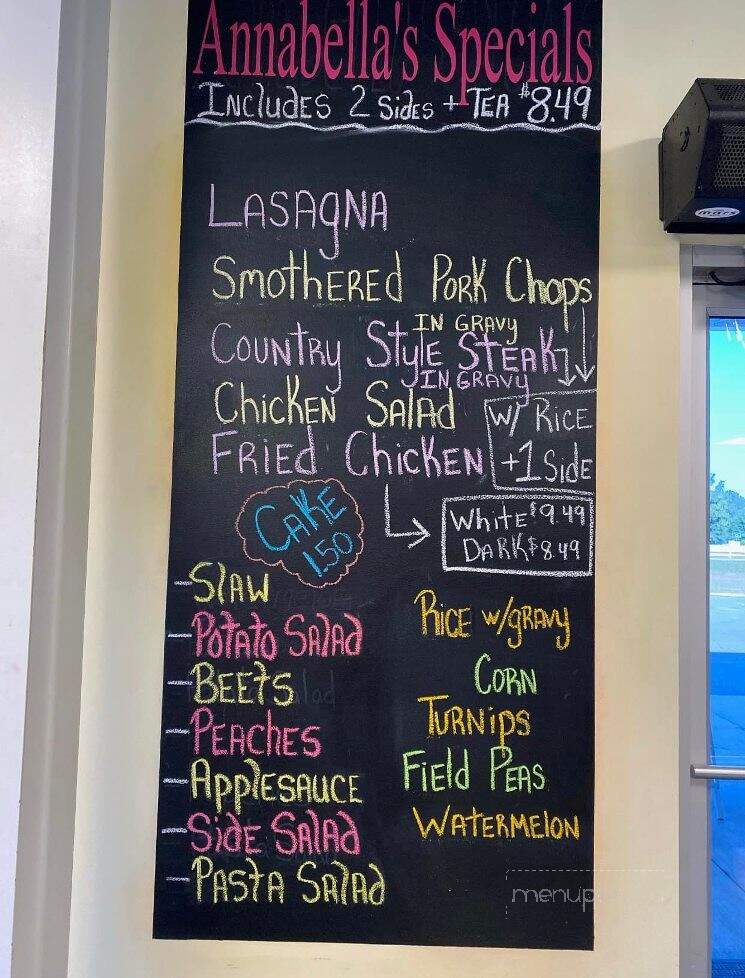 Annabella's Specials
Includes 2 Sides + Tea $8.49
Lasagna
Smothered Pork Chops
In Gravy
Country Style Steak
In Gravy
Chicken Salad
w/ Rice
+1 Side
Fried Chicken
White $9.49
Dark $8.49
Cake
1.50
Slaw
Potato Salad
Beets
Peaches
Applesauce
Side Salad
Pasta Salad
Rice w/gravy
Corn
Turnips
Field Peas
Watermelon
menup